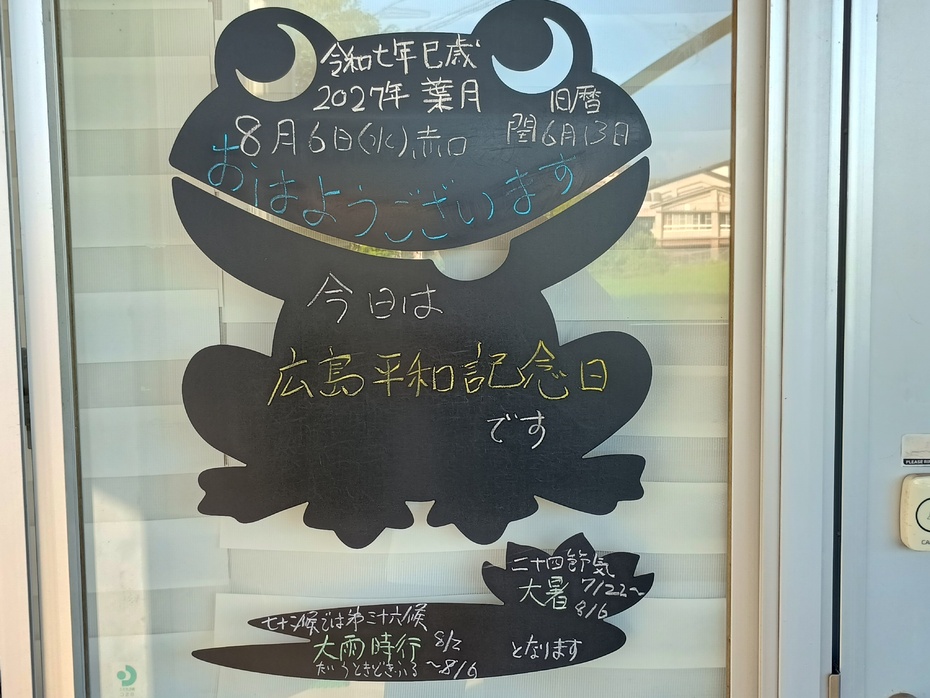 令和七年巳歳
2027年 葉月
旧暦
8月6日(水)赤口
閏6月13日
おはようございます
今日は
広島平和記念日
です
二十四節気
大暑 7/22〜
8/6
七十二候では第三十六候
大雨時行 8/2
たいうときどきふる 〜8/6
となります